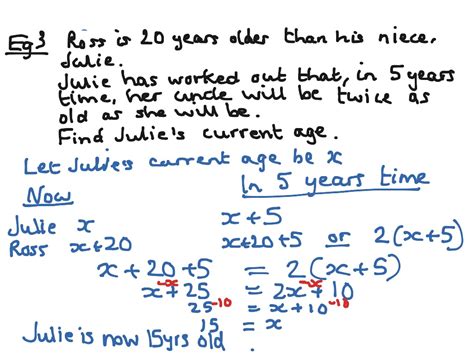 Eg3 Ross is 20 years older than his niece,
Julie.
Julie has worked out that, in 5 years
time, her uncle will be twice as
old as she will be.
Find Julie's current age.
Let Julies current age be x
Now In 5 years time
Julie x x+5
Ross x+20 x+20+5 or 2(x+5)
x+20+5 = 2(x+5)
-x -x
x+25 = 2x+10
25 -10 = x+10 -10
15 = x
Julie is now 15yrs old.